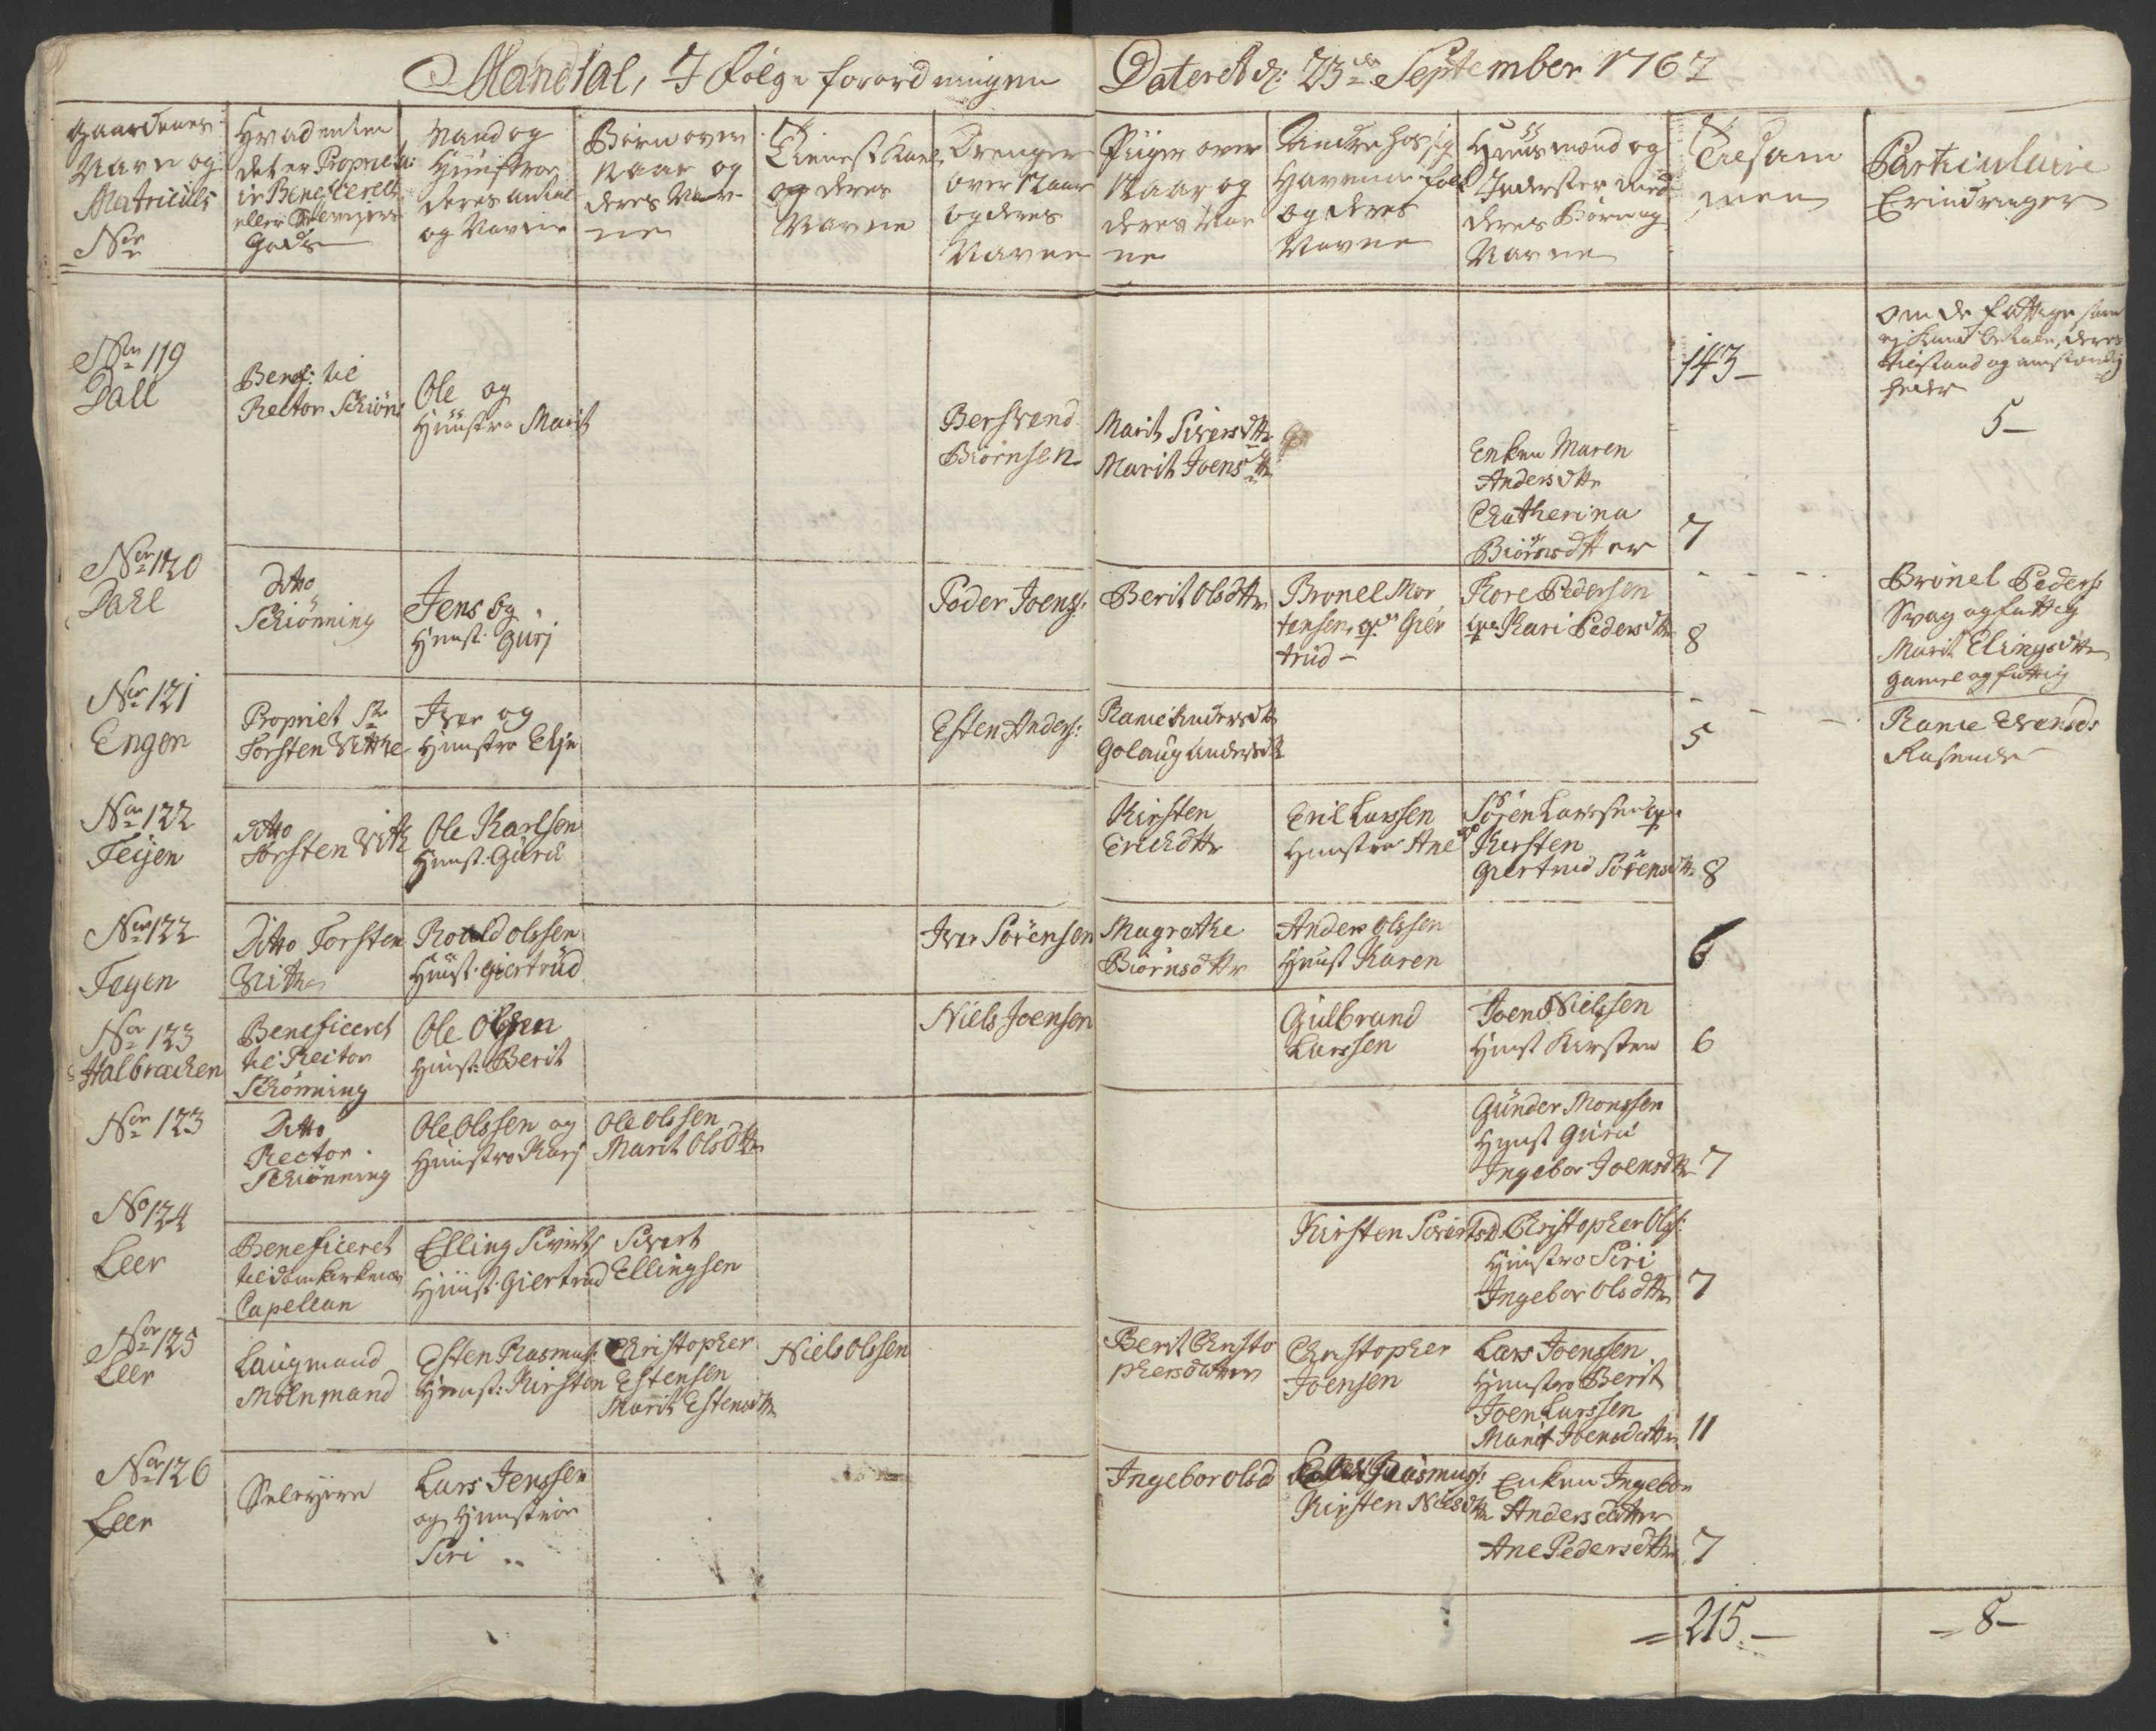 Mandtal, I følge forordningen Dateret d: 23de September 1762
Gaardenes
Navn og
Matriculs
No
Hvad enten
det er Propriet:
ir Beneficeret
eller Selvejer
Gods
Mand og
Hustroe
deres antal
og Navne
Børn over
12 aar og
deres Nav-
ne
Tienest Karle
og deres
Navne
Drenger
over 12 aar
og deres
Navne
Piiger over
12 aar og
deres Nav
ne
Andre hos sig
Havende folk
og deres
Navne
Huusmænd og
Inderster med
deres Børn og
Navne
Tilsam
men
Particulaire
Erindringer
No 119
Dall
Benef: til
Rector Schiøn:
Ole og
Huustro Marit
Bersvend
Biørnsen
Marit Siversdtr
Marit Joensdtr
Enken Maren
Andersdtr
Chatherina
Biørnsdtter
143
7
om de fattige som
ej kand betale, deres
tilstand og omstændig
heder
5
No 120
Dahl
ditto
Schiønning
Jens og
Huust: Gurj
Peder Joens:
Berit Olsdtr
Bronel Mor
tensen, qv: Gier
trud
Tore Pedersen
qv Kari Pedersdtr
8
Brønel Peders:
Svag og fattig
Marit Elingsdtr
gamel og fattig
No 121
Engen
Propriet Sr
Torsten Withe
Iver og
Huustro Elje
Esten Anders:
Ranie Andersdtr
Golaug Andersdtr
5
Ranie Evensd:
Rasende
No 122
Teijen
ditto
Torsten With
Ole Karlsen
Huust: Guru
Kirsten
Erichdtr
Eril Larssen
Huustroe Ane
Søren Larssen qv.
Kirsten
Giertrud Sørensdtr
8
No 122
Tegen
Ditto Torsten
Withe
Roald Olssen
Huust: Giertrud
Iver Sørensen
Magrethe
Biørnsdtr
Anders Olssen
Huust Karen
6
No 123
Halbrachen
Beneficeret
til Rector
Schønning
Ole Olsen
Huust: Berit
Niels Joensen
Gulbrand
Larssen
Joen Nielssen
Huust Kirsten
6
No 123
Ditto
Rector
Schiønning
Ole Olssen og
Huustro Karj
Ole Olssen
Marit Olsdtr
Gunder Monssen
Huust Guru
Ingebor Joensdtr
7
No 124
Leer
Beneficeret
til domkirkens
Capellan
Elling Siverts
Huust: Giertrud
Sivert
Ellingsen
Kirsten Sivertsd:
Christopher Ols:
Huustro Siri
Ingebor Olsdtr
7
No 125
Leer
Laugmand
Molnmand
Esten Rasmus:
Huust: Kirsten
Christopher
Estensen
Marit Estensdtr
Niels Olssen
Berit Christo
phersdatter
Christopher
Joensen
Lars Joenssen
Huustro Berit
Joen Larssen
Marit Joensdatr
11
No 126
Leer
Selvejere
Lars Jenssen
og Huustroe
Siri
Ingebor Olsd
Rasmus:
Kirsten Nielsdtr
Enken Ingebor
Andersdatter
Ane Pedersdtr
7
215
8